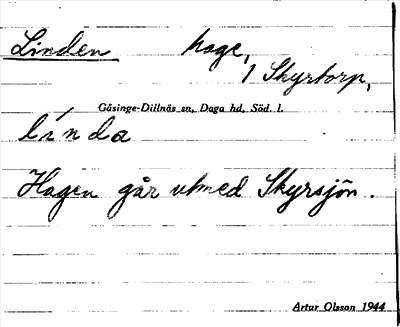 Linden hage,
1 Skyrtorp,
Gåsinge-Dillnäs sn, Daga hd, Söd. l.
línda
Hagen går utmed Skyrsjön.
Artur Olsson 1944